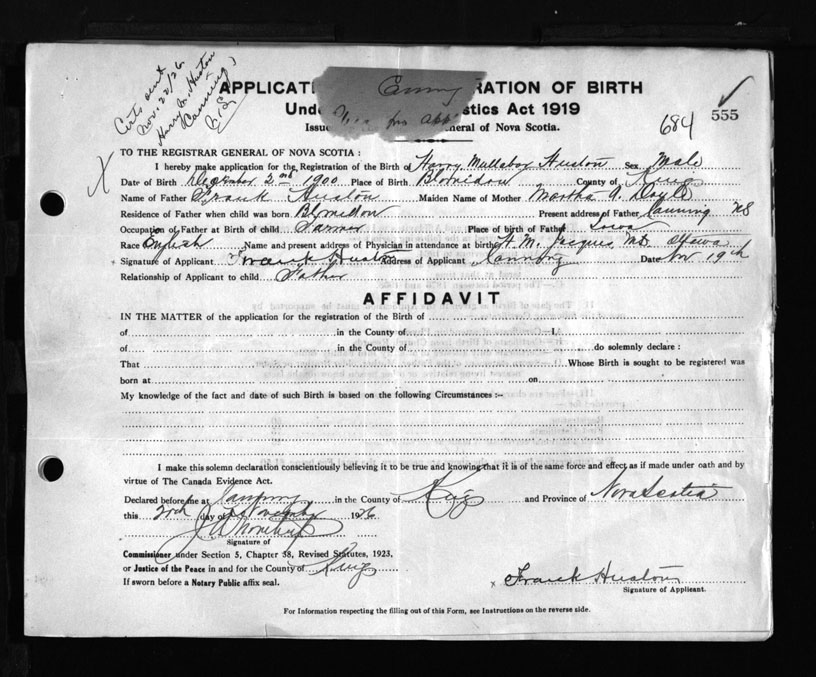 Certs sent
Nov. 22/26
Harry M. Huston
Canning
N.S.
APPLICATI RATION OF BIRTH
Unde stics Act 1919
Issue eneral of Nova Scotia.
for
684
555
TO THE REGISTRAR GENERAL OF NOVA SCOTIA :
I hereby make application for the Registration of the Birth of Harry Huston Sex Male
Date of Birth 2nd 1900 Place of Birth Blomidon County of Kings
Name of Father Frank Huston Maiden Name of Mother Martha A.
Residence of Father when child was born Blomidon Present address of Father, Canning NS
Occupation of Father at Birth of child Farmer Place of birth of Father Iowa
Race English Name and present address of Physician in attendance at birth H. M. Jacques MD. Ottawa
Signature of Applicant Frank Huston Address of Applicant Canning Date Nov 19th
Relationship of Applicant to child Father
AFFIDAVIT
IN THE MATTER of the application for the registration of the Birth of
of in the County of I,
of in the County of do solemnly declare :
That Whose Birth is sought to be registered was
born at on
My knowledge of the fact and date of such Birth is based on the following Circumstances :–
I make this solemn declaration conscientiously believing it to be true and knowing that it is of the same force and effect as if made under oath and by
virtue of The Canada Evidence Act.
Declared before me at Canning in the County of Kings and Province of Nova Scotia
this 20th day of November 1926
Signature of
Commissioner under Section 5, Chapter 38, Revised Statutes, 1923,
or Justice of the Peace in and for the County of Kings
If sworn before a Notary Public affix seal.
x Frank Huston
Signature of Applicant.
For Information respecting the filling out of this Form, see Instructions on the reverse side.